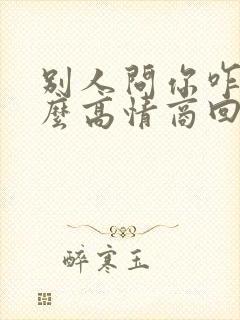 別人問你咋
麼高情商回
醉寒玉